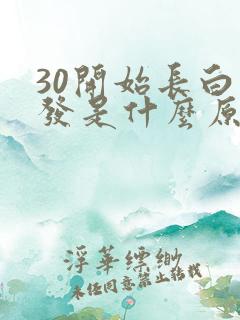 30開始長白
發是什麼原
浮華縹緲
未經同意禁止轉載